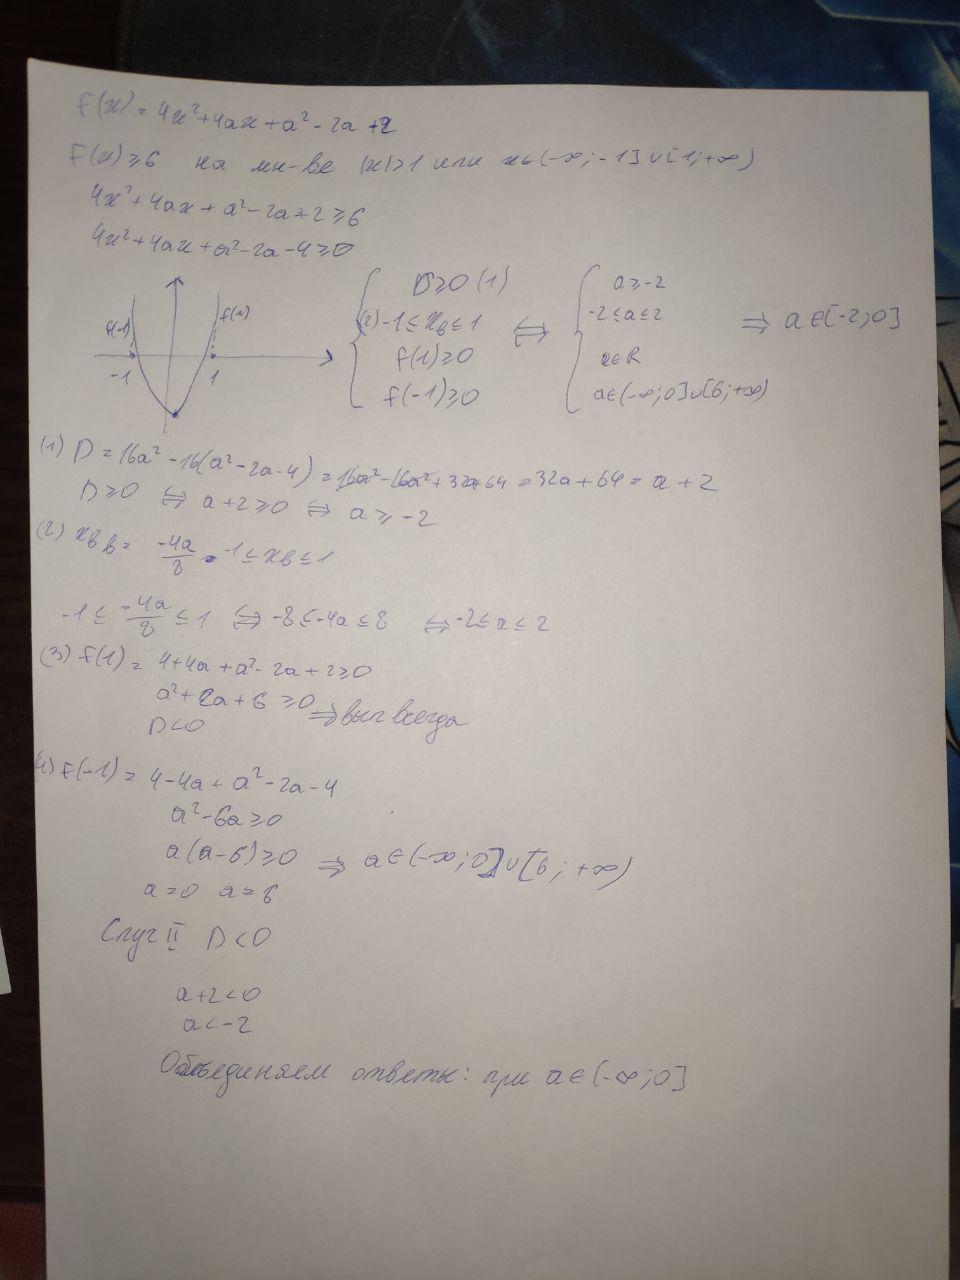 f(x) = 4x²+4ax+a²-2a+2
f(x)≥6 на мн-ве |x|>1 или x∈(-∞;-1]∪[1;+∞)
4x²+4ax+a²-2a+2≥6
4x²+4ax+a²-2a-4≥0
f(-1) f(1)
-1 1
D≥0 (1)
(2) -1≤xв≤1
f(1)≥0
f(-1)≥0
⇔
a≥-2
-2≤a≤2
a∈R
a∈(-∞;0]∪[6;+∞)
⇒ a∈[-2;0]
(1) D=16a²-16(a²-2a-4)=16a²-16a²+32a+64=32a+64=a+2
D≥0 ⇔ a+2≥0 ⇔ a≥-2
(2) xв = -4a/8 -1≤xв≤1
-1≤ -4a/8 ≤1 ⇔ -8≤-4a≤8 ⇔ -2≤a≤2
(3) f(1)= 4+4a+a²-2a+2≥0
a²+2a+6≥0 ⇒ вып всегда
D<0
(4) f(-1)= 4-4a+a²-2a-4
a²-6a≥0
a(a-6)≥0 ⇒ a∈(-∞;0]∪[6;+∞)
a=0 a=6
Случ II D<0
a+2<0
a<-2
Объединяем ответы: при a∈(-∞;0]